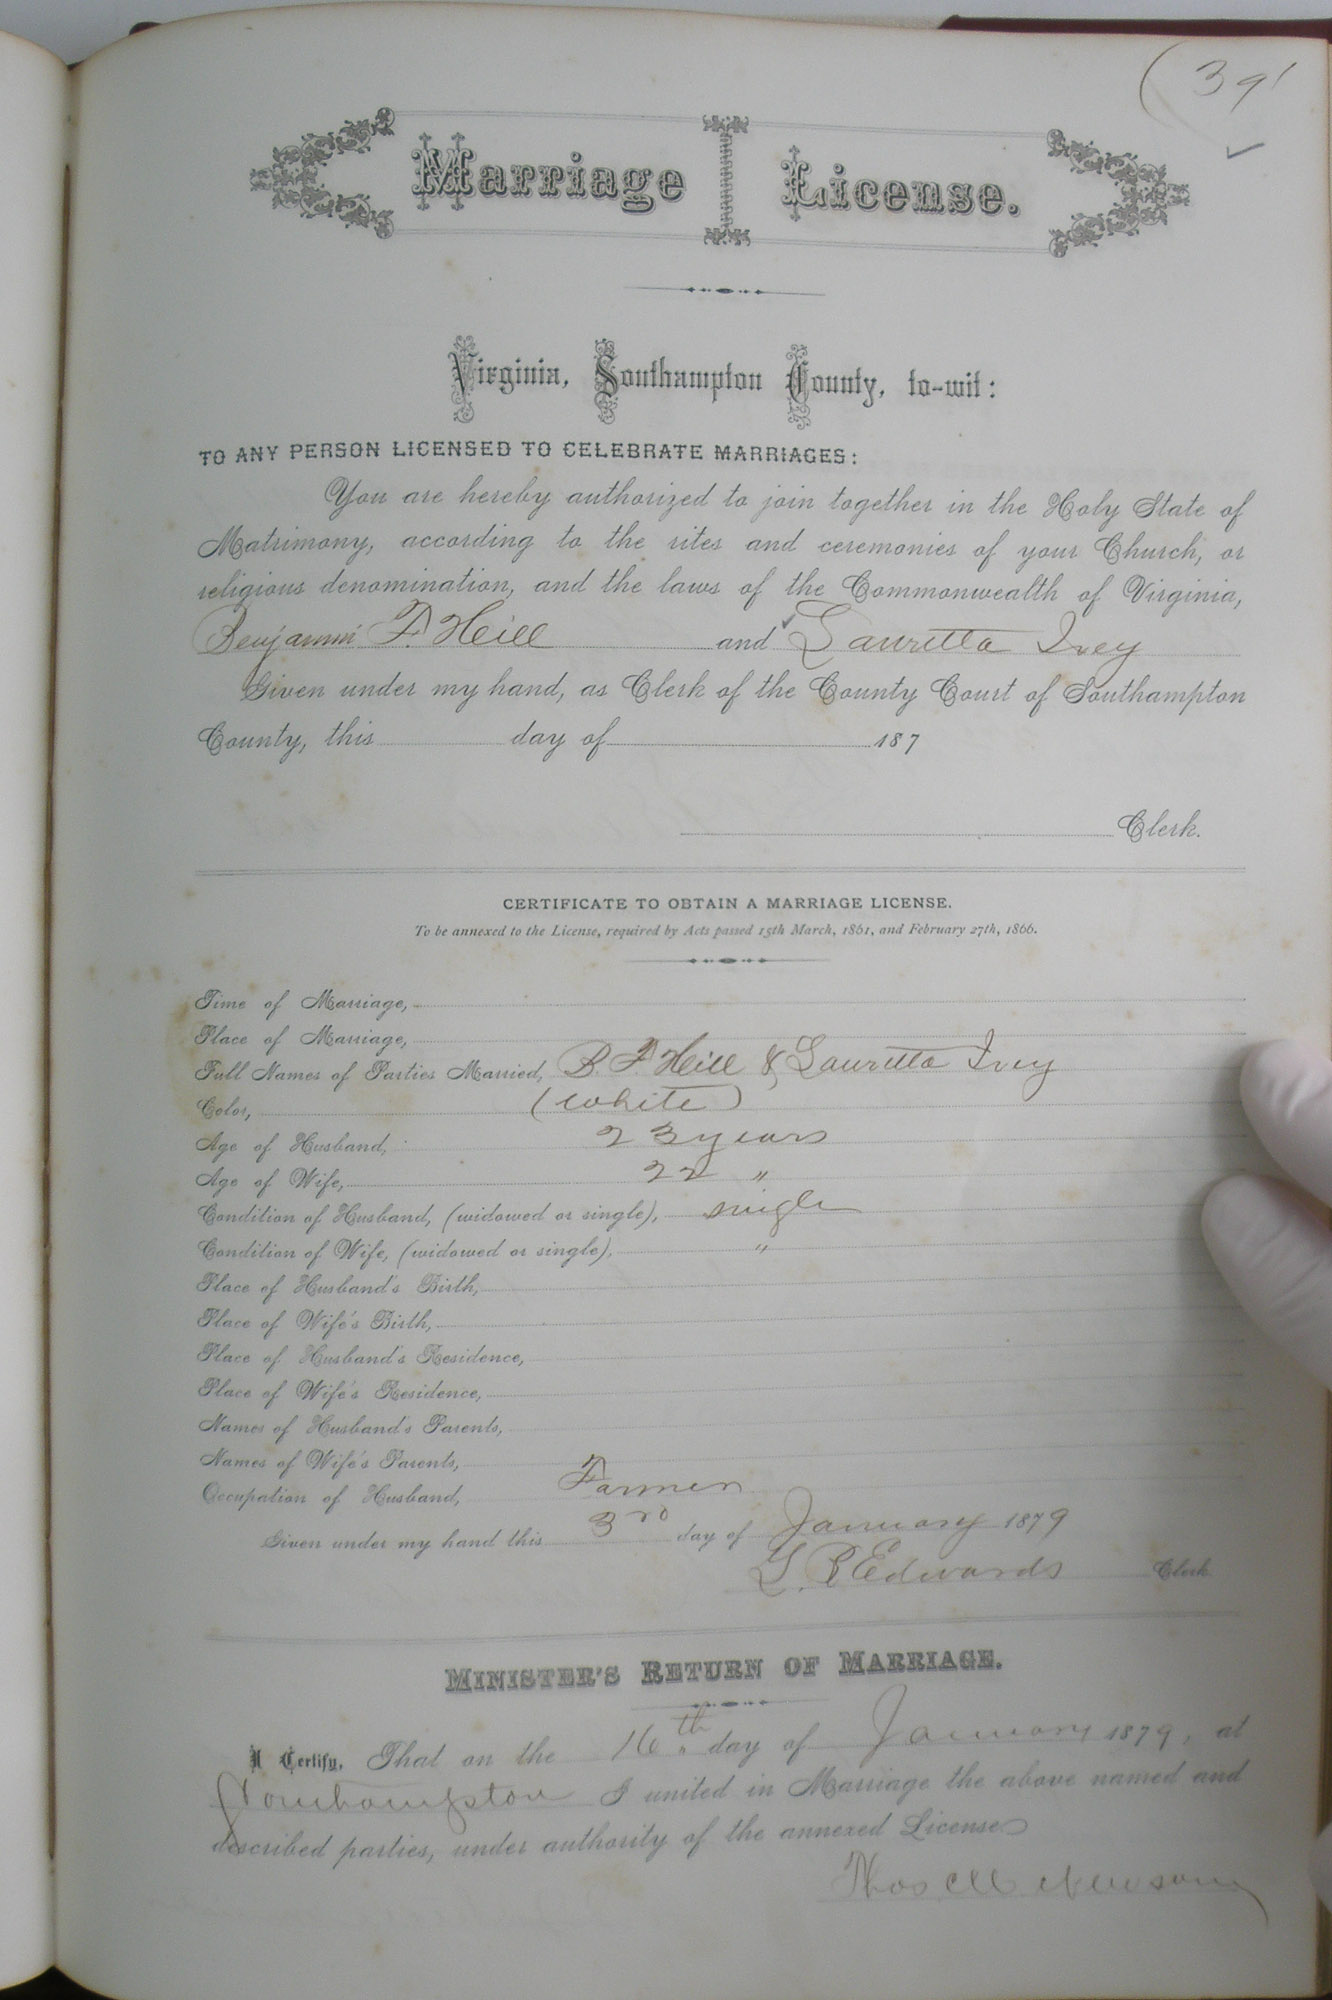 (39'
Marriage License.
Virginia, Southampton County, to-wit:
TO ANY PERSON LICENSED TO CELEBRATE MARRIAGES:
You are hereby authorized to join together in the Holy State of
Matrimony, according to the rites and ceremonies of your Church, or
religious denomination, and the laws of the Commonwealth of Virginia,
Benjamin F. Hill and Lauretta Ivey
Given under my hand, as Clerk of the County Court of Southampton
County, this day of 187
Clerk.
CERTIFICATE TO OBTAIN A MARRIAGE LICENSE.
To be annexed to the License, required by Acts passed 15th March, 1861, and February 27th, 1866.
Time of Marriage,
Place of Marriage,
Full Names of Parties Married, B. F Hill & Lauretta Ivey
Color, (white)
Age of Husband, 23 years
Age of Wife, 22 "
Condition of Husband, (widowed or single), single
Condition of Wife, (widowed or single), "
Place of Husband's Birth,
Place of Wife's Birth,
Place of Husband's Residence,
Place of Wife's Residence,
Names of Husband's Parents,
Names of Wife's Parents,
Occupation of Husband, Farmer
Given under my hand this 3rd day of January 1879
L. R Edwards Clerk
MINISTER'S RETURN OF MARRIAGE.
I Certify, That on the 16th day of January 1879, at
Southampton I united in Marriage the above named and
described parties, under authority of the annexed License
Thos M Newsom